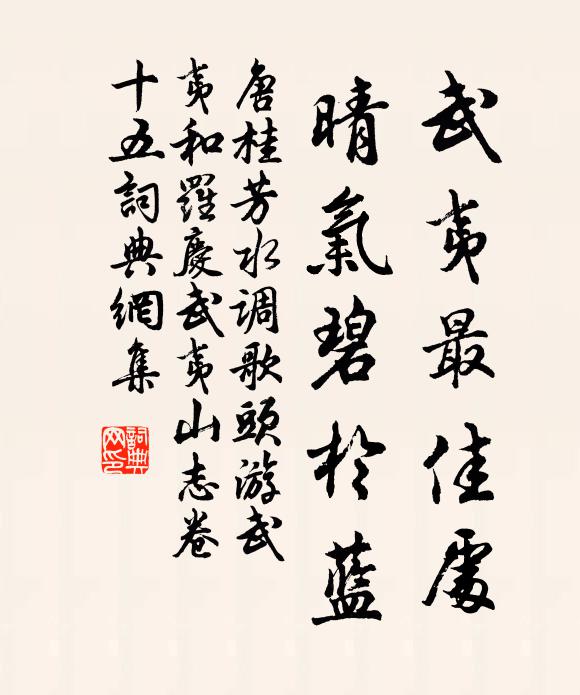 武夷最佳處
晴氣碧於藍
唐桂芳水调歌頭游武
夷和羅慶武夷山志卷
十五詞典網集
詞典
网印